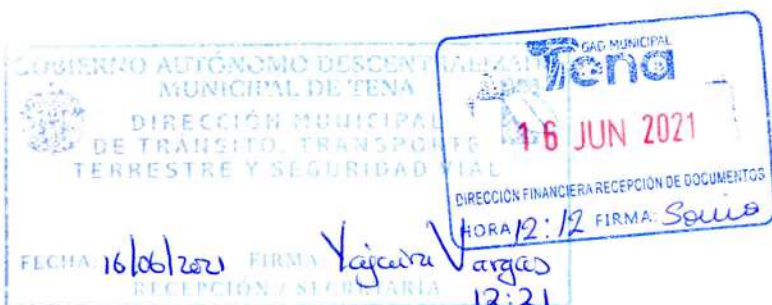 GOBIERNO AUTÓNOMO DESCENTRALIZADO
MUNICIPAL DE TENA
DIRECCIÓN MUNICIPAL
DE TRÁNSITO, TRANSPORTE
TERRESTRE Y SEGURIDAD VIAL
FECHA: 16/06/2021 FIRMA: Yajaira Vargas
RECEPCIÓN / SECRETARIA
12:21
GAD MUNICIPAL
Tena
16 JUN 2021
DIRECCIÓN FINANCIERA RECEPCIÓN DE DOCUMENTOS
HORA 12:12 FIRMA: Sonia